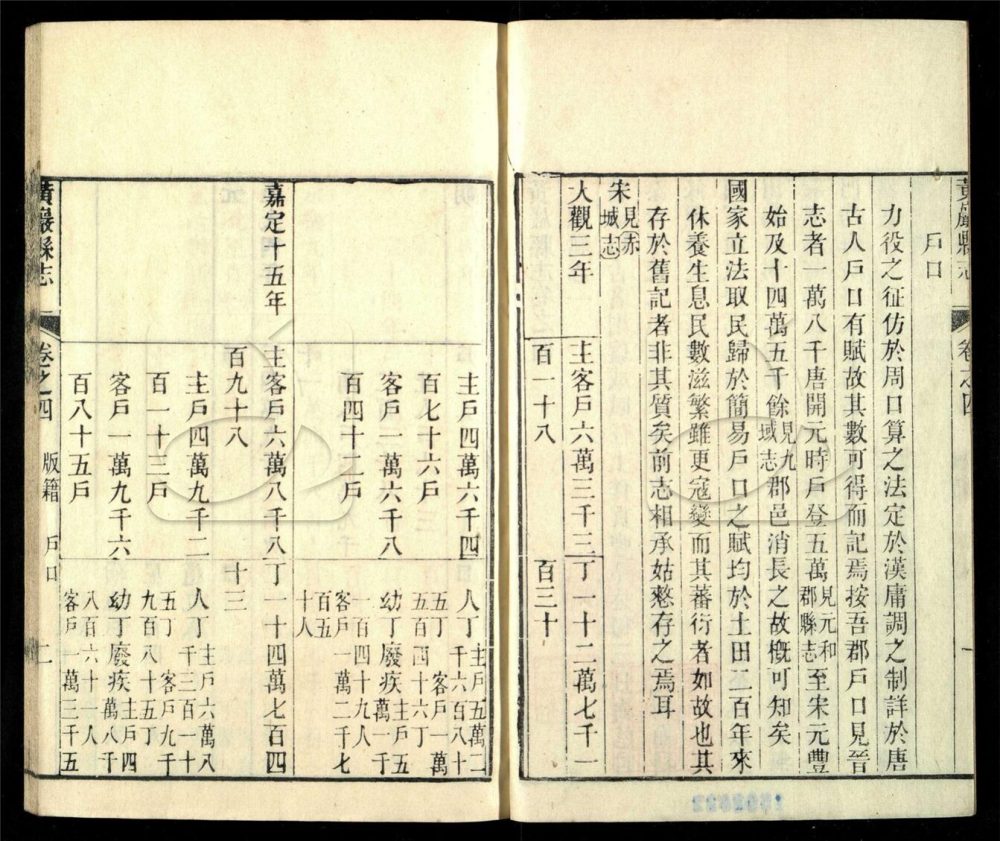 黃巖縣志 卷之四
戶口
力役之征仿於周口算之法定於漢庸調之制詳於唐
古人戶口有賦故其數可得而記焉按吾郡戶口見晉
志者一萬八千唐開元時戶登五萬見元和郡縣志至宋元豐
始及十四萬五千餘見九域志郡邑消長之故槪可知矣
國家立法取民歸於簡易戶口之賦均於土田二百年來
休養生息民數滋繁雖更寇變而其蕃衍者如故也其
存於舊記者非其質矣前志相承姑憖存之焉耳
宋見赤城志
大觀三年
主客戶六萬三千三
百一十八
丁一十二萬七千一
百三十
主戶四萬六千四
百七十六戶
客戶一萬六千八
百四十二戶
人丁主戶五萬二
千六百八十
五丁客戶一萬
五百四十六丁
幼丁廢疾主戶五
萬一千
一百四十九人
客戶一萬二千七
百五
十人
嘉定十五年
主客戶六萬八千八
百九十八
丁一十四萬七百四
十三
主戶四萬九千二
百一十三戶
客戶一萬九千六
百八十五戶
人丁主戶六萬八
千三百一十
五丁客戶九千
九百八十五丁
幼丁廢疾主戶四
萬八千
八百六十一人
客戶一萬三千五
黃巖縣志 卷之四 版籍 戶口 二